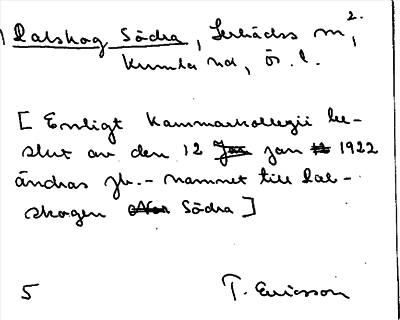 Dalskog Södra, Lerbäcks sn, 2.
Kumla hd, Ör. l.
[ Enligt Kammarkollegii be-
slut av den 12 jan 1922
ändras jb.-namnet till Dal-
skogen Södra ]
5 T. Ericsson